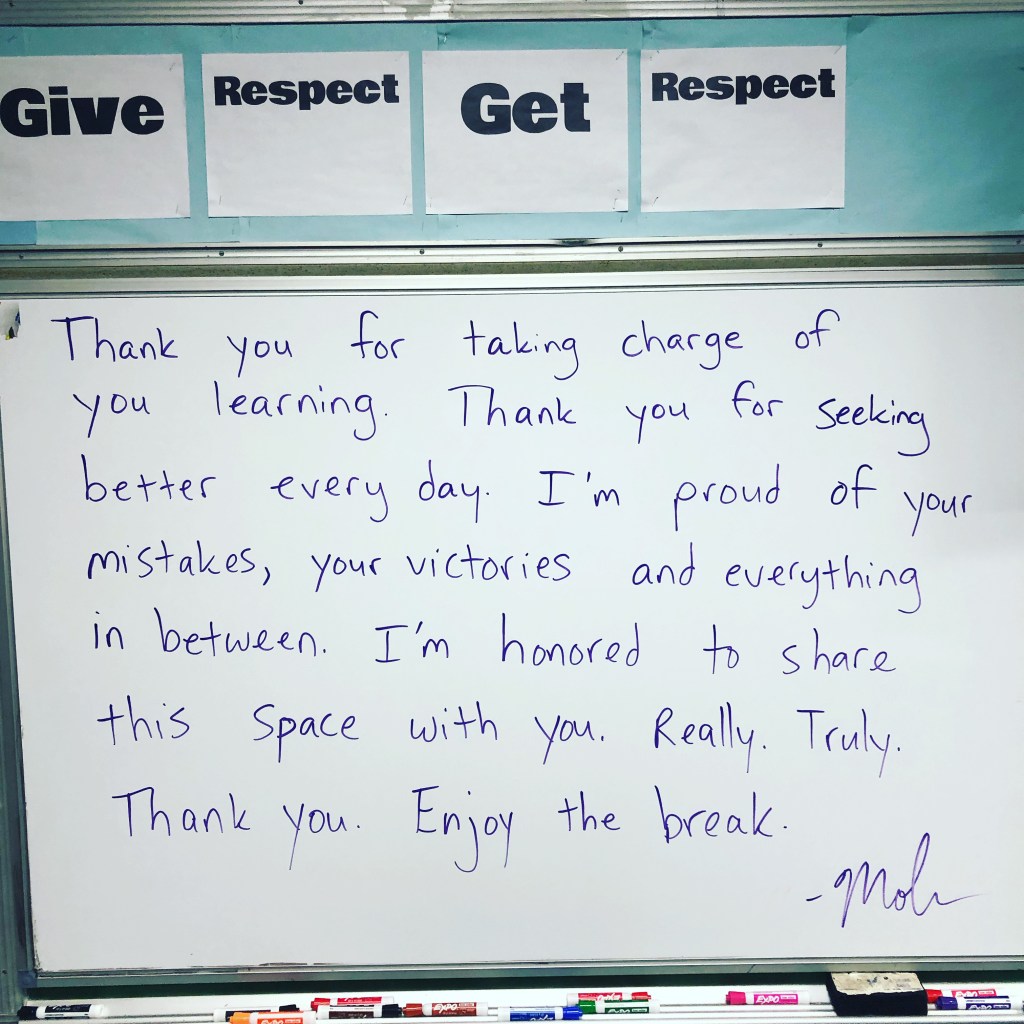 Give Respect Get Respect
Thank you for taking charge of
you learning. Thank you for seeking
better every day. I'm proud of your
mistakes, your victories and everything
in between. I'm honored to share
this space with you. Really. Truly.
Thank you. Enjoy the break.
EXPO EXPO EXPO EXPO